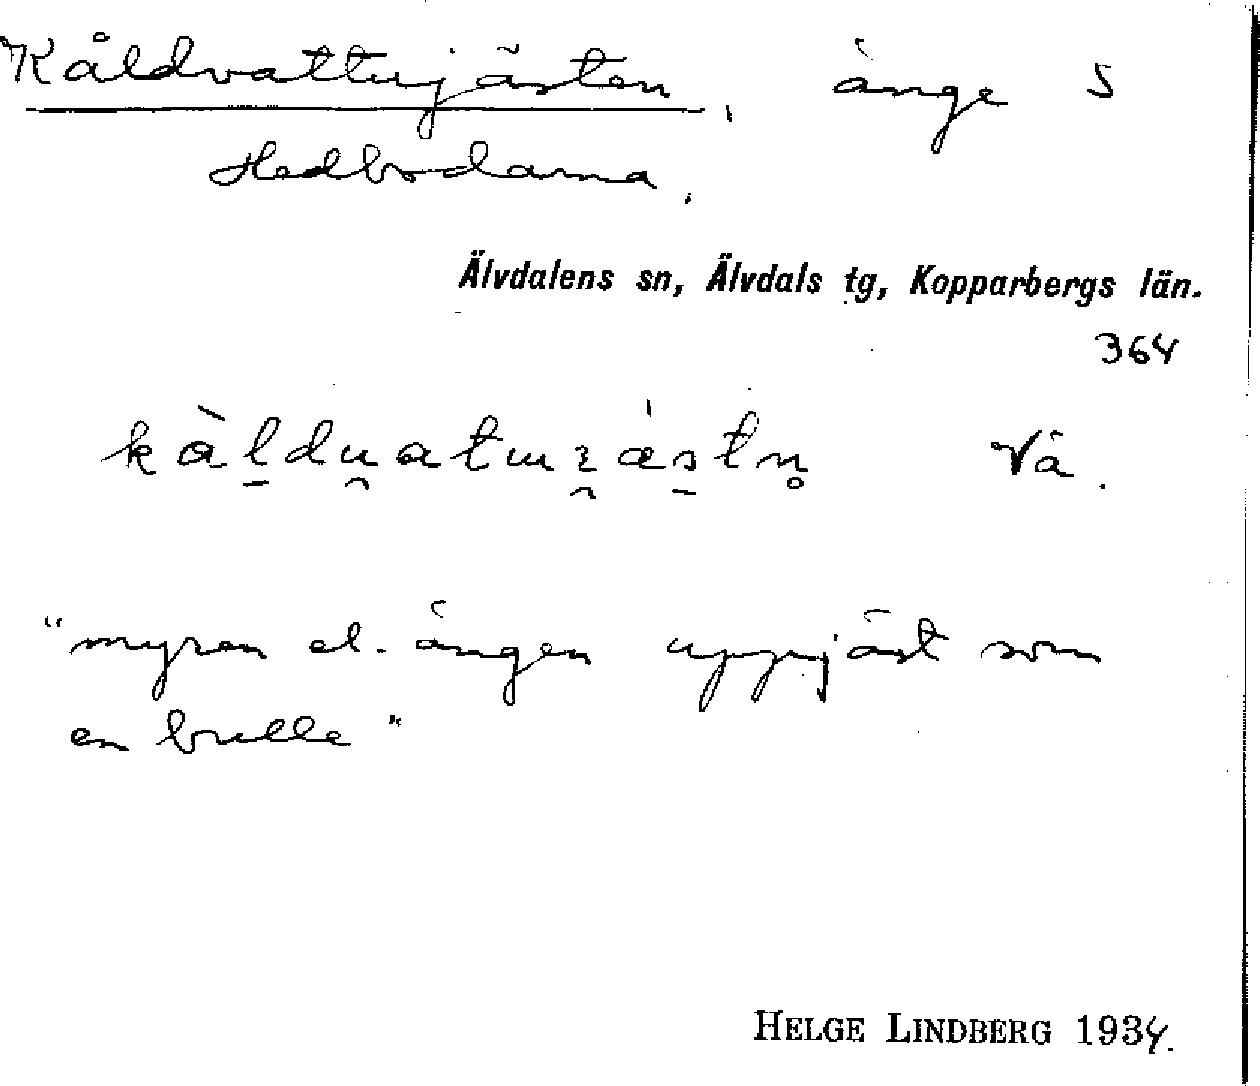 Kåldvattujästen, änge S
Hedbodarna,
Älvdalens sn, Älvdals tg, Kopparbergs län.
364
Vä.
"myren el. ängen uppjäst som
en bulle"
HELGE LINDBERG 1934.